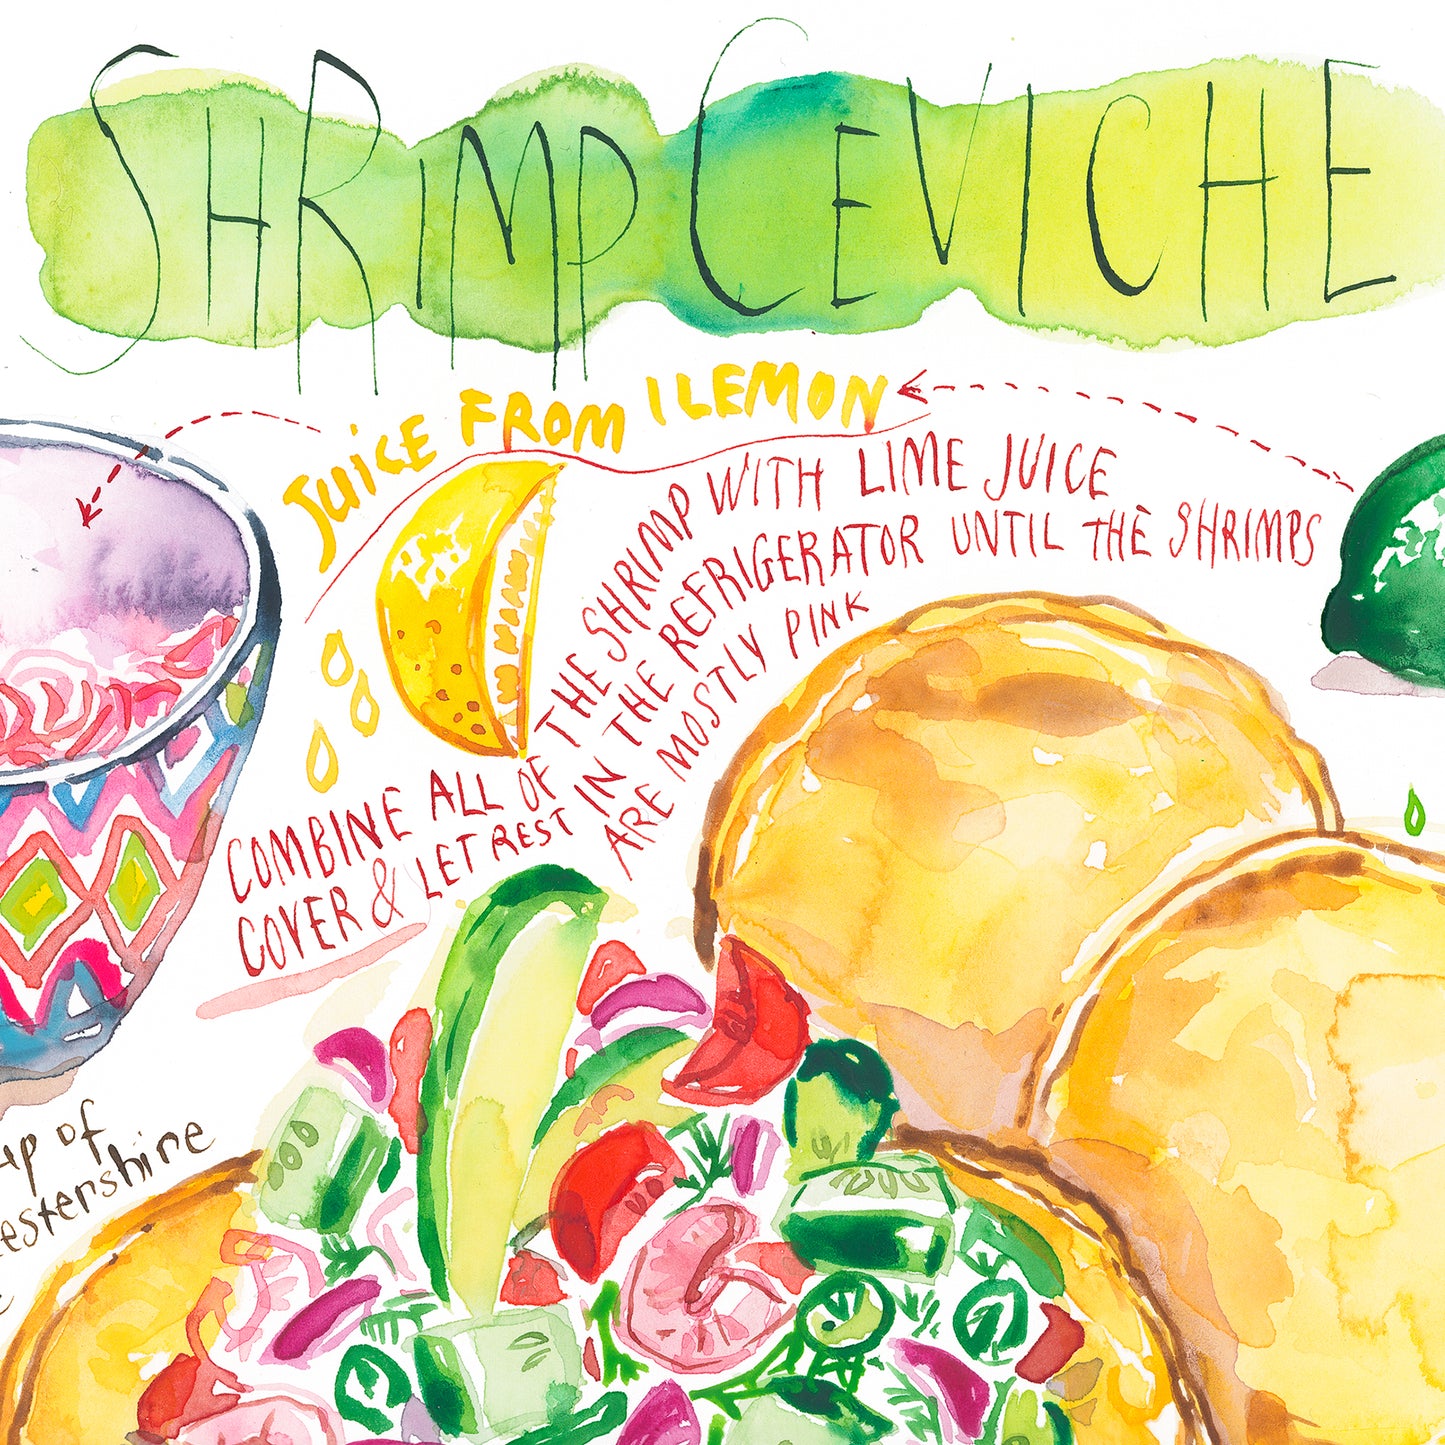 SHRIMP CEVICHE
JUICE FROM 1 LEMON
COMBINE ALL OF THE SHRIMP WITH LIME JUICE
COVER & LET REST IN THE REFRIGERATOR UNTIL THE SHRIMPS
ARE MOSTLY PINK
up of
estershire